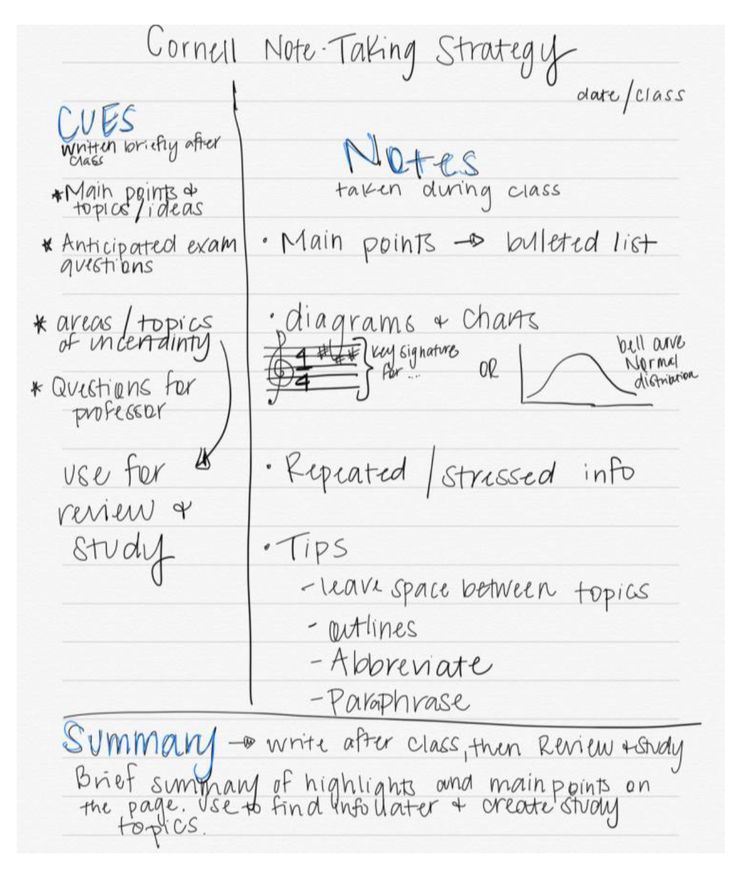 Cornell Note-Taking Strategy
date/class
CUES
written briefly after
class
*Main points &
topics/ideas
* Anticipated exam
questions
* areas/topics
of uncertainty
* Questions for
professor
use for
review &
study
Notes
taken during class
· Main points → bulleted list
· diagrams & charts
4
4
key signature
for...
OR
bell curve
Normal
distribution
· Repeated/stressed info
· Tips
- leave space between topics
- outlines
- Abbreviate
- Paraphrase
Summary → write after class, then Review & study
Brief summary of highlights and main points on
the page. Use to find info later & create study
topics.